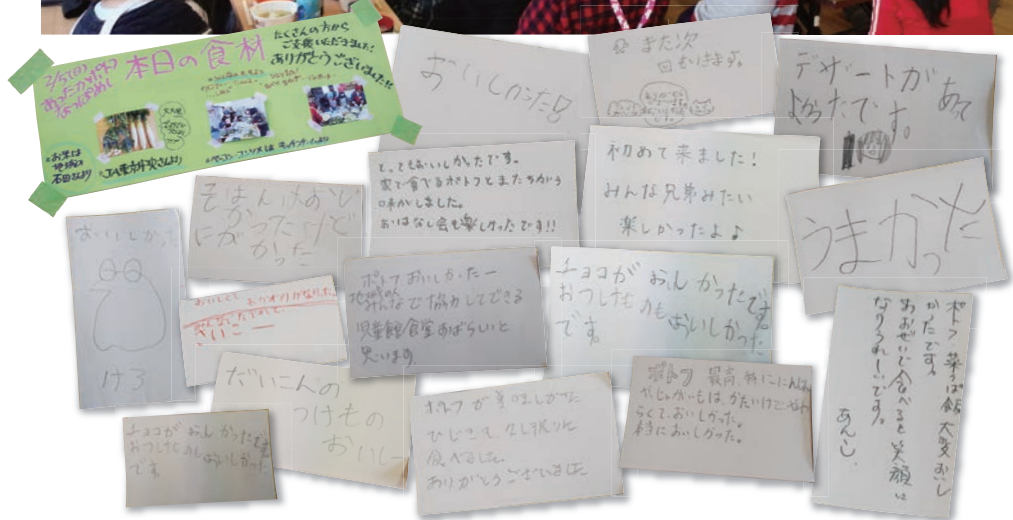 2/5(日)
あったかポトフ
なっぱめし
本日の食材
たくさんの方から
ご支援いただきました!
ありがとうございました!!
お米は
地域の
石田さんより
JA東京中央さんより
おいしかった!
また次
回もいきます。
デザートがあって
よかったです。
とってもおいしかったです。
家で食べるポトフとまたちがう
味がしました。
おはなし会も楽しかったです!!
初めて来ました!
みんな兄弟みたい
楽しかったよ♪
うまかった
ごはんはおいし
かったけど
にがかった
おいしかった
けろ
おいしくて、おかわりがなりった。
さいこー
ポトフおいしかったー
地域のみんなで協力してできる
児童館食堂すばらしいと
思います。
チョコが おいしかったです。
おつけものもおいしかった
です。
ポトフ 菜っぱ飯 大変おいし
かったです。
おおぜいで食べると笑顔に
なりうれしいです。
だいこんの
つけもの
おいしー
チョコが おいしかったです
おつけものもおいしかった
です
ポトフが美味しかった
ひじきも久し振りに
食べました
ありがとうございました
ポトフ 最高、特ににんじん
や、じゃがいもは、かたいけどやわ
らくて、おいしかった。
特においしかった。